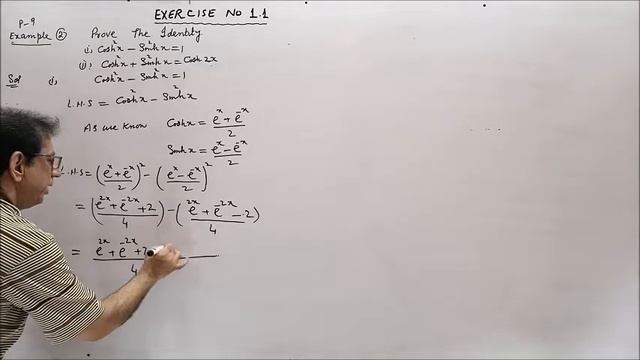 EXERCISE NO 1.1
P-9
Example ② Prove The Identity
(i) Cosh²x − Sinh²x = 1
(ii) Cosh²x + Sinh²x = Cosh 2x
Sol (i) Cosh²x − Sinh²x = 1
L.H.S = Cosh²x − Sinh²x
As we know Coshx = (eˣ + e⁻ˣ)/2
Sinhx = (eˣ − e⁻ˣ)/2
L.H.S = ((eˣ + e⁻ˣ)/2)² − ((eˣ − e⁻ˣ)/2)²
= ((e²ˣ + e⁻²ˣ + 2)/4) − ((e²ˣ + e⁻²ˣ − 2)/4)
= (e²ˣ + e⁻²ˣ + 2)/4